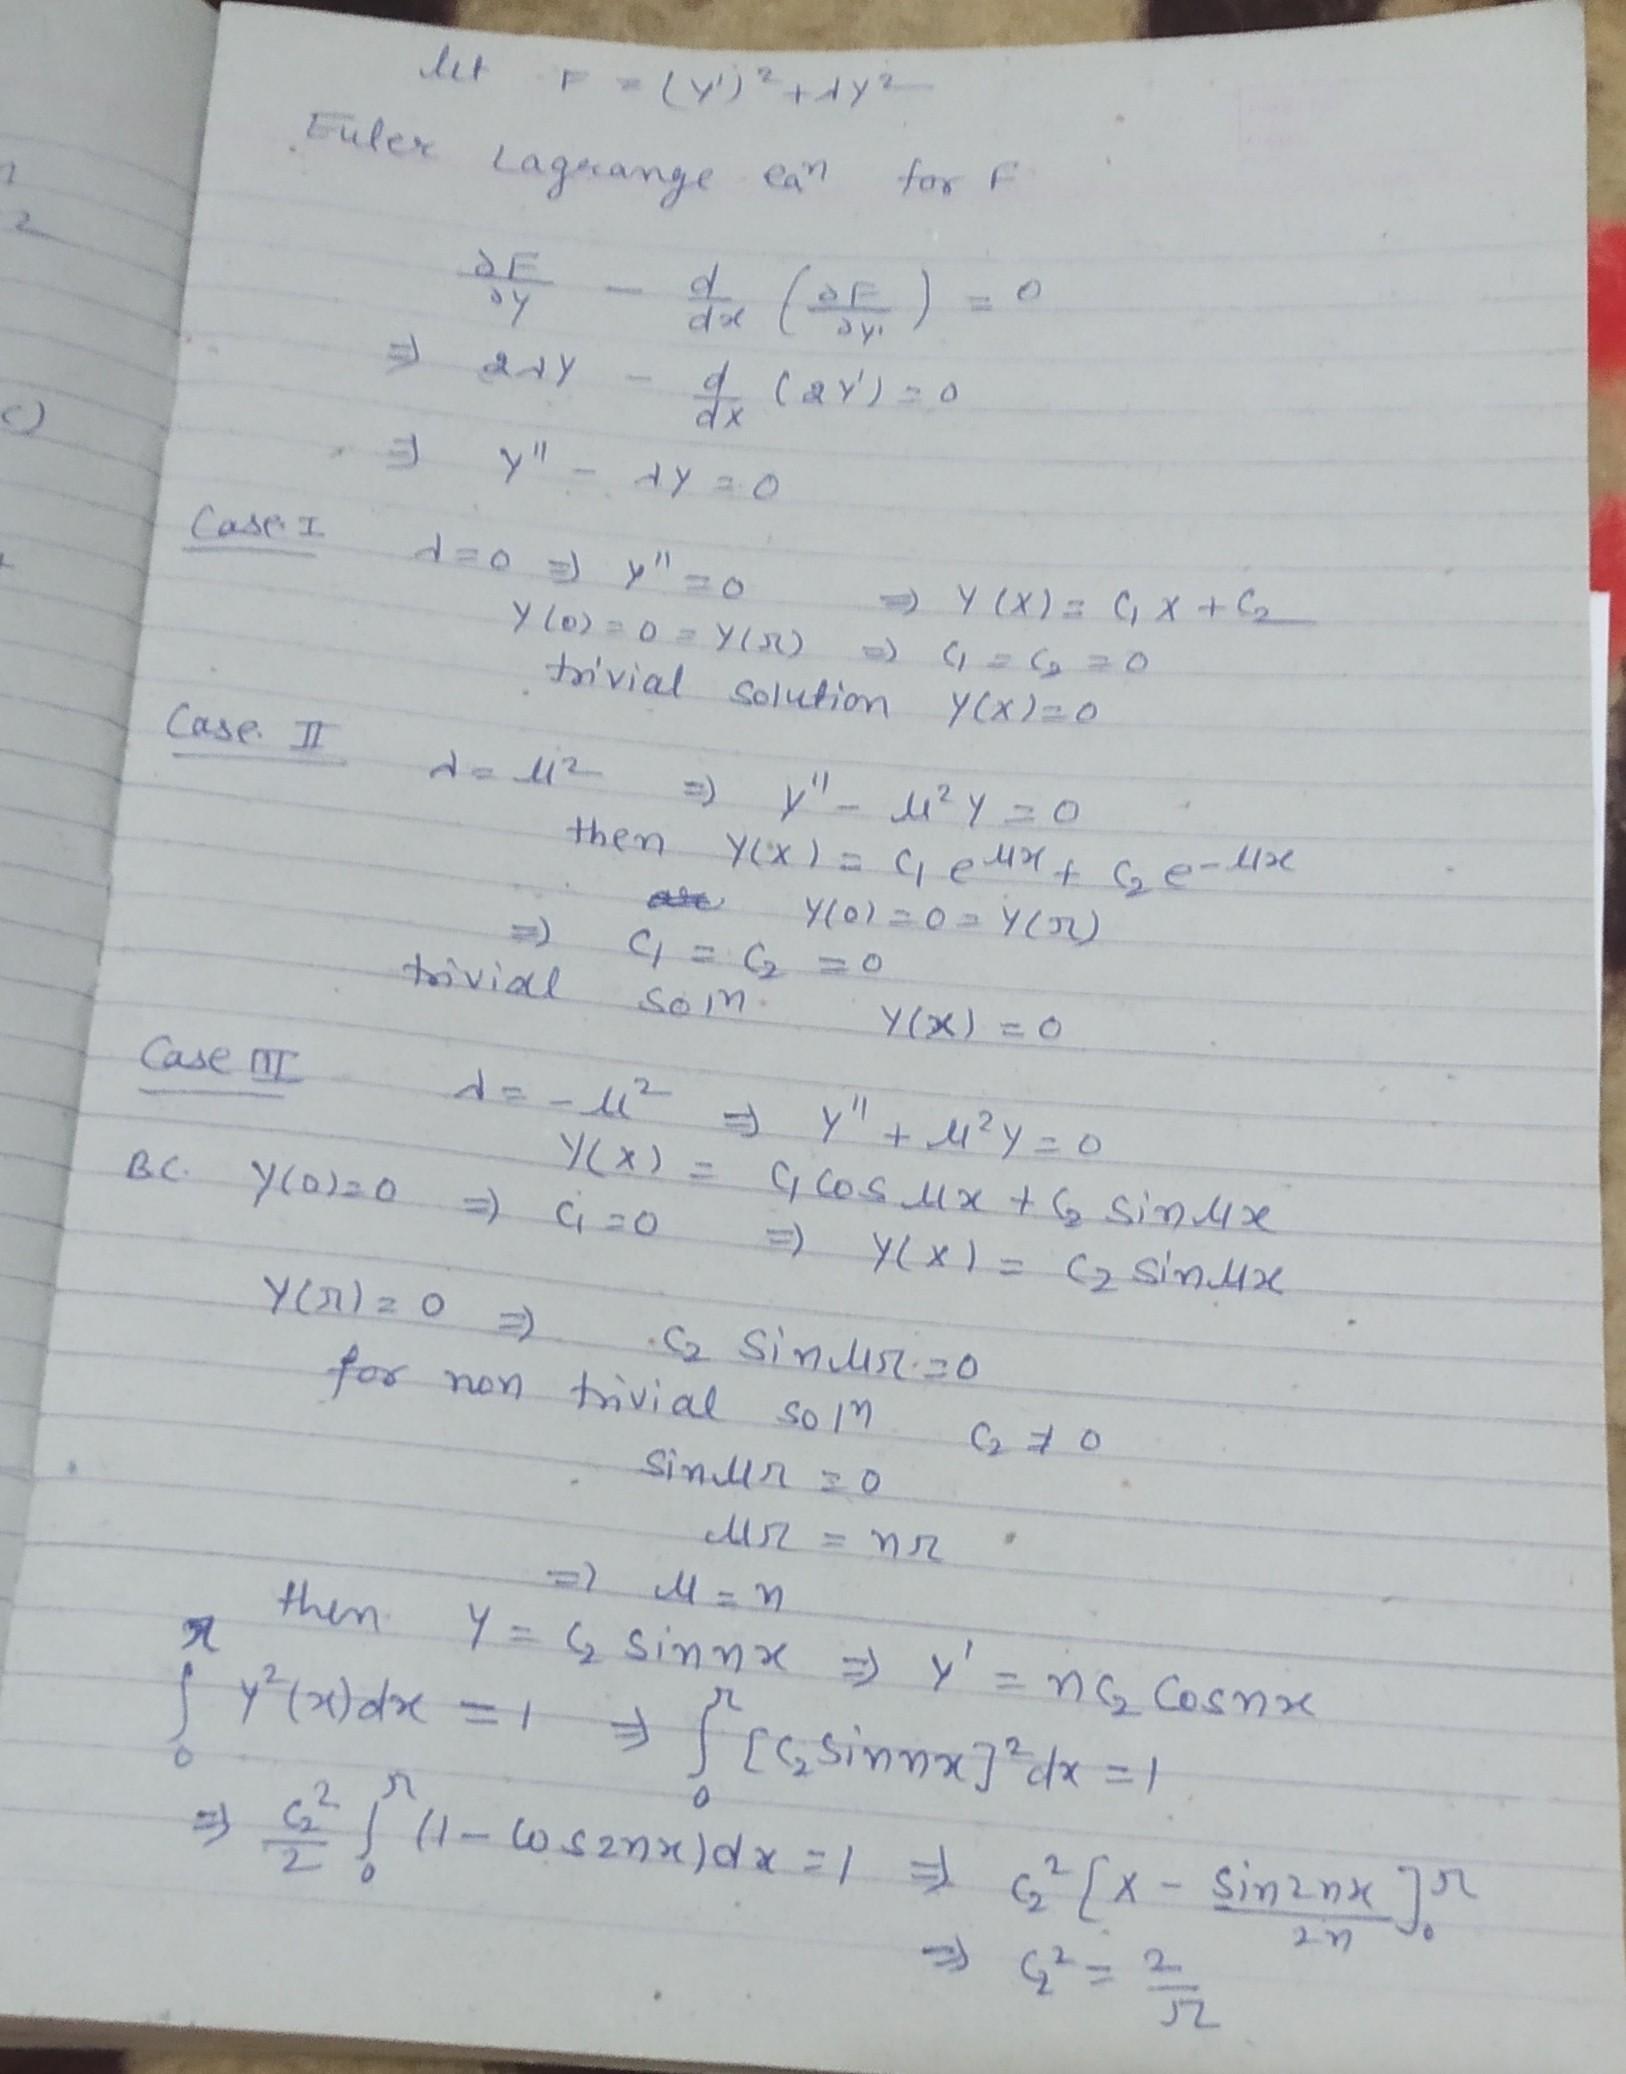 let F = (y')² + λy²
Euler Lagrange eqn for F
∂F/∂y - d/dx (∂F/∂y') = 0
⇒ 2λy - d/dx (2y') = 0
⇒ y'' - λy = 0
Case I λ=0 ⇒ y''=0 ⇒ y(x) = c₁x + c₂
y(0)=0=y(π) ⇒ c₁=c₂=0
trivial solution y(x)=0
Case II λ=μ² ⇒ y'' - μ²y = 0
then y(x) = c₁e^{μx} + c₂e^{-μx}
y(0)=0=y(π)
⇒ c₁ = c₂ = 0
trivial soln. y(x) = 0
Case III λ = -μ² ⇒ y'' + μ²y = 0
y(x) = c₁ cos μx + c₂ sin μx
B.C. y(0)=0 ⇒ c₁=0 ⇒ y(x) = c₂ sin μx
y(π)=0 ⇒ c₂ sin μπ = 0
for non trivial soln c₂ ≠ 0
sin μπ = 0
μπ = nπ
⇒ μ = n
then y = c₂ sin nx ⇒ y' = nc₂ cos nx
∫₀^π y²(x)dx = 1 ⇒ ∫₀^π [c₂ sin nx]² dx = 1
⇒ c₂²/2 ∫₀^π (1 - cos 2nx)dx = 1 ⇒ c₂² [x - sin 2nx/2n]₀^π
⇒ c₂² = 2/π